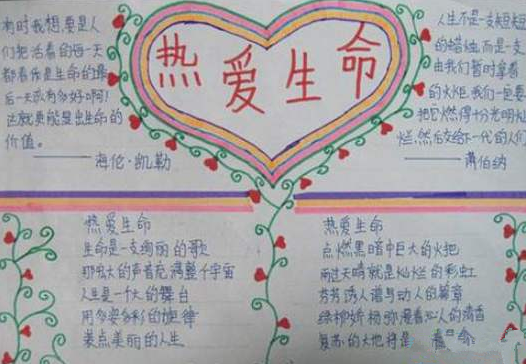 热爱生命
有时我想,要是人
们把活着的每一天
都看作是生命的最
后一天该有多好啊!
这就更能显出生命的
价值。
——海伦·凯勒
人生不是一支短短
的蜡烛,而是一支
由我们暂时拿着
的火炬,我们一定要
把它燃得十分光明灿
烂,然后交给下一代的人们
——萧伯纳
热爱生命
生命是一支绚丽的歌
那我大的声音充满整个宇宙
人生是一个大的舞台
用多姿多彩的旋律
装点美丽的人生
热爱生命
点燃黑暗中巨大的火把
雨过天晴就是灿烂的彩虹
芬芳诱人谱写动人的篇章
绿柳娇杨弥漫着
的清香
复苏的大地将是